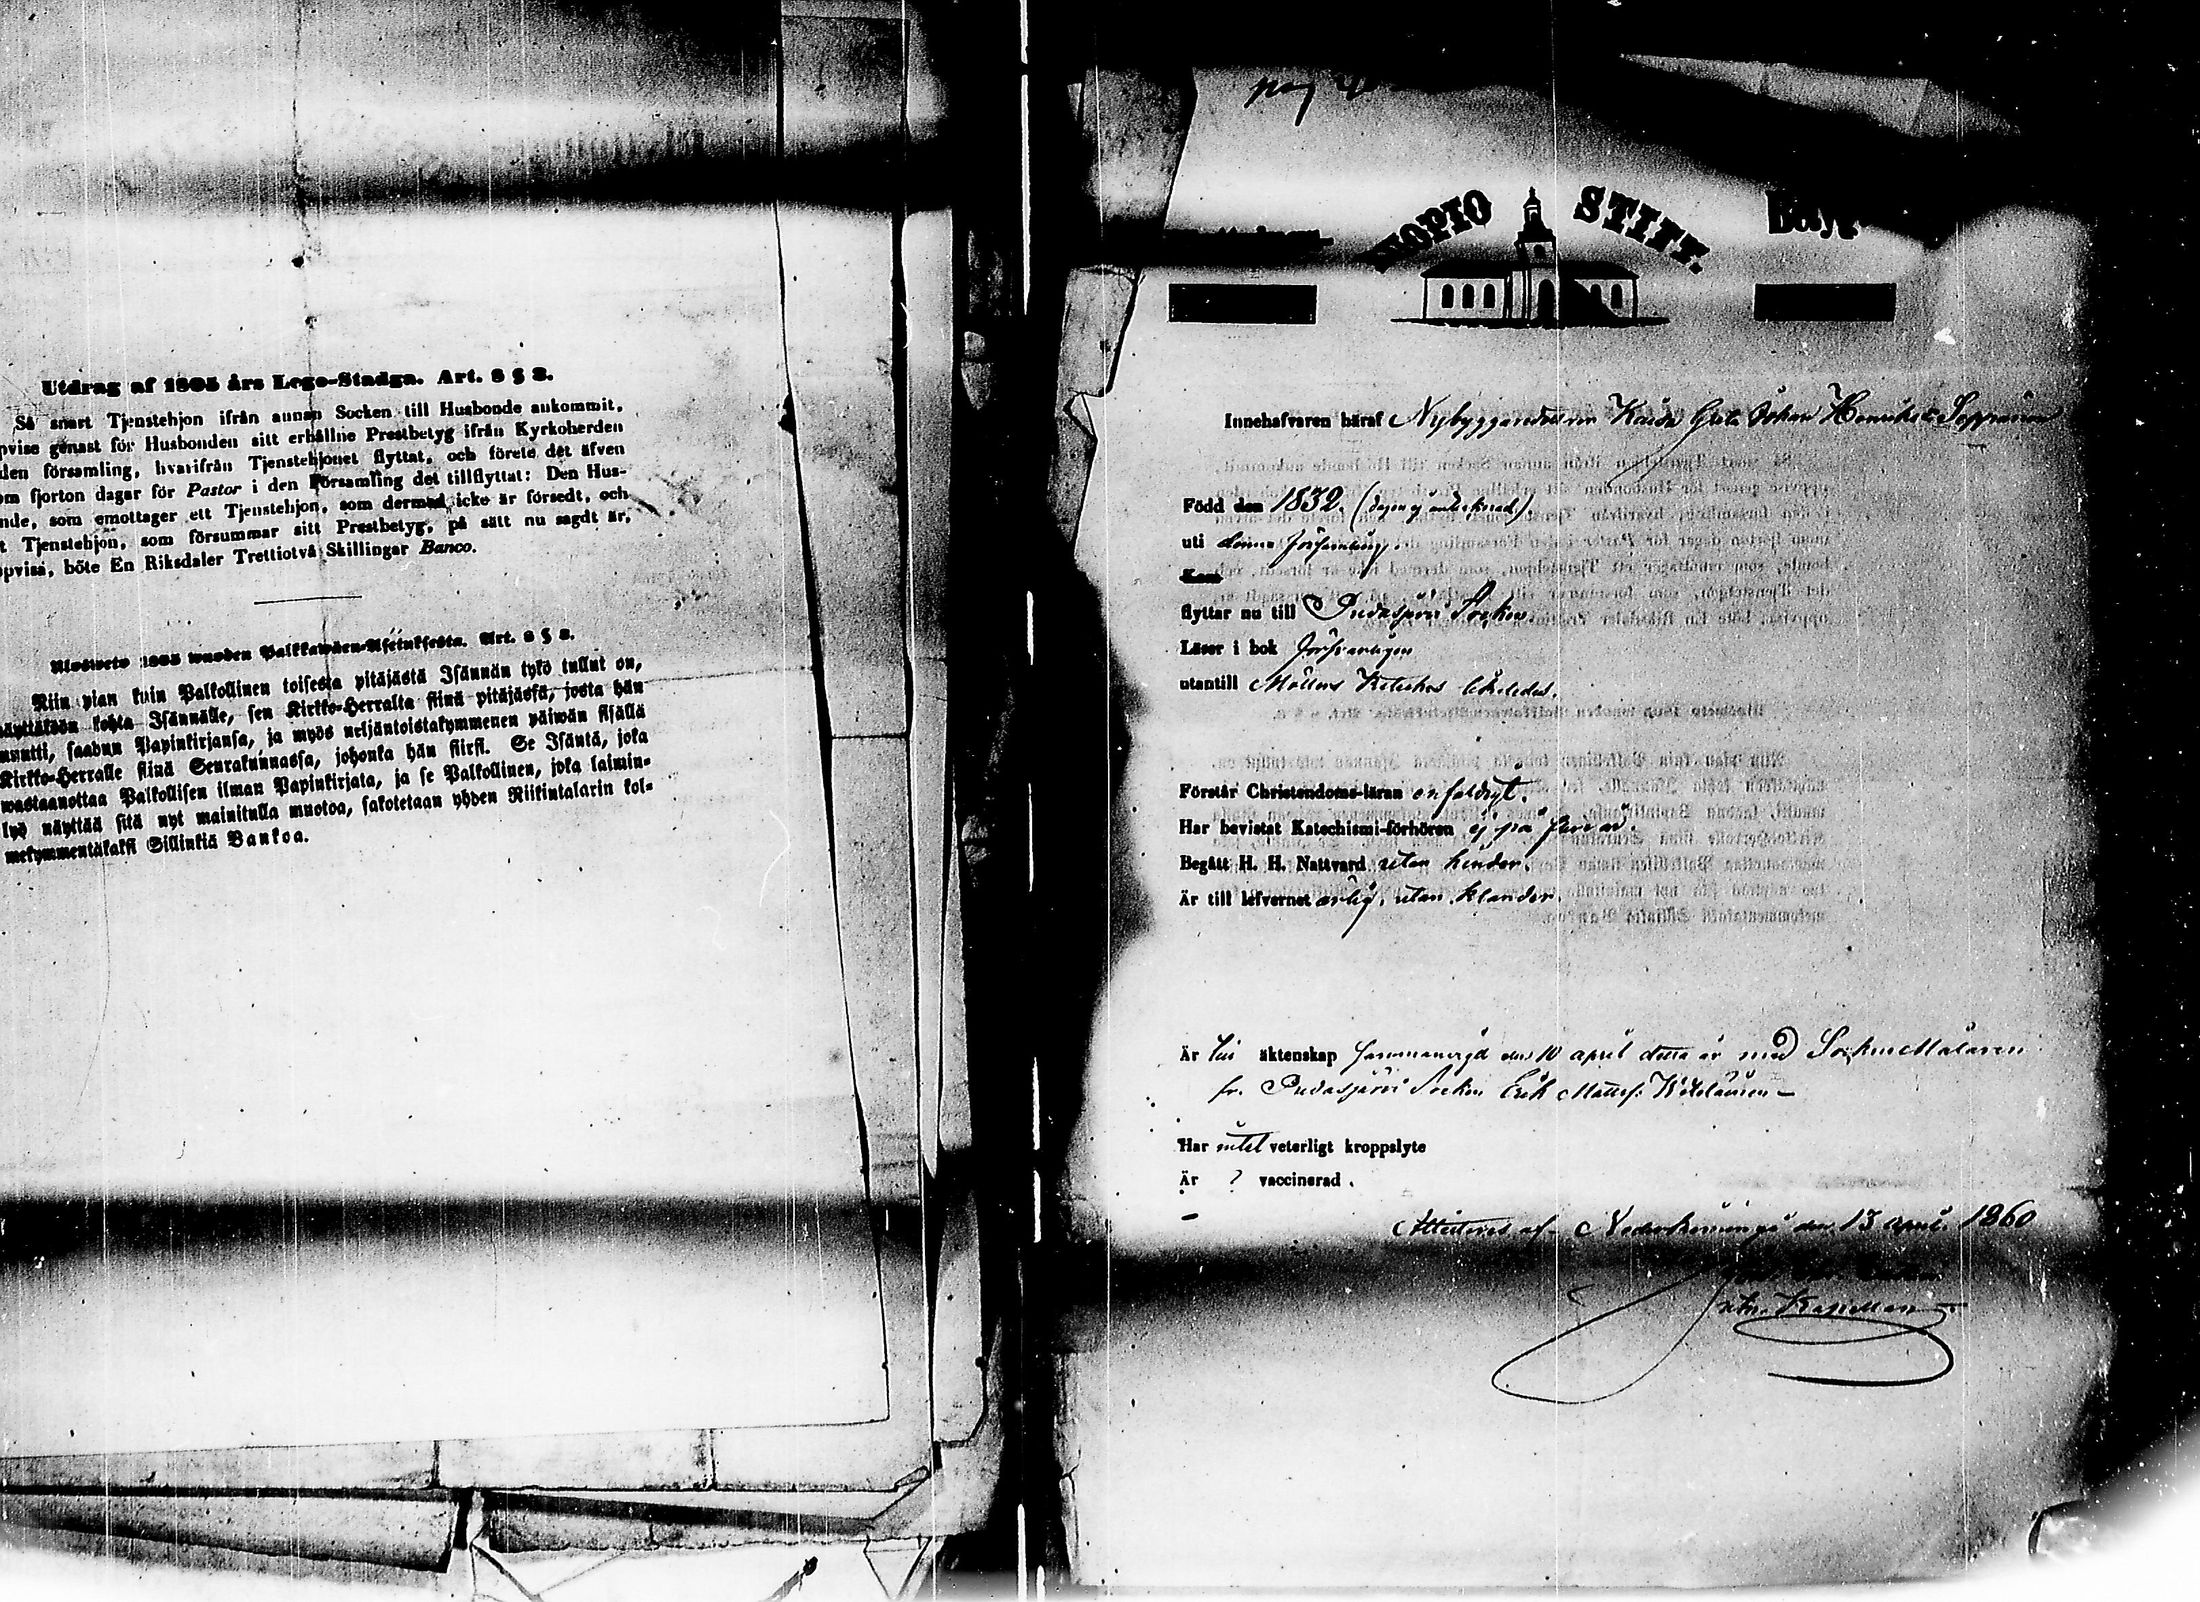 Utdrag af 1805 års Lego-Stadga. Art. 8 § 2.
Så snart Tjenstehjon ifrån annan Socken till Husbonde ankommit,
pvise genast för Husbonden sitt erhållne Prestbetyg ifrån Kyrkoherden
den församling, hvarifrån Tjenstehjonet flyttat, och förete det äfven
om fjorton dagar för Pastor i den Församling det tillflyttat: Den Hus-
nde, som emottager ett Tjenstehjon, som dermed icke är försedt, och
t Tjenstehjon, som försummar sitt Prestbetyg, på sätt nu sagdt är,
pvisa, böte En Riksdaler Trettiotvå Skillingar Banco.
Ulosweto 1805 wuoden Palkkawäen-Asetuksesta. Art. 8 § 2.
Niin pian kuin Palkollinen toisesta pitäjästä Isännän tykö tullut on,
näyttäköön kohta Isännälle, sen Kirkko-Herralta siinä pitäjässä, josta hän
muutti, saadun Papinkirjansa, ja myös neljäntoistakymmenen päiwän sisällä
Kirkko-Herralle siinä Seurakunnassa, johonka hän siirsi. Se Isäntä, joka
wastaanottaa Palkollisen ilman Papinkirjata, ja se Palkollinen, joka laimin-
lyö näyttää sitä nyt mainitulla muotoa, sakotetaan yhden Riikintalarin kol-
mekymmentäkaksi Sillinkiä Bankoa.
pag
UOPIO STIFT. Betyg
Innehafvaren häraf Nybyggaredottren Kaisa Greta Johan Henriksdr Seppänen
Född den 1832. (dagen ej antecknad).
uti denna församling.
Kom
flyttar nu till Pudasjärvi Socken
Läser i bok försvarligen
utantill Möllers Kateches likaledes.
Förstår Christendoms-läran enfaldigt.
Har bevistat Katechismi-förhören ej på
Begått H. H. Nattvard utan hinder.
Är till lefvernet ärlig, utan klander.
Är till äktenskap sammanvigd den 10 april detta år med SockneMålaren
fr. Pudasjärvi Socken Erik Mattsf:
Har intet veterligt kroppslyte
Är ? vaccinerad.
Attesteras af Nederkiiminge den 13 april 1860
Kapellan